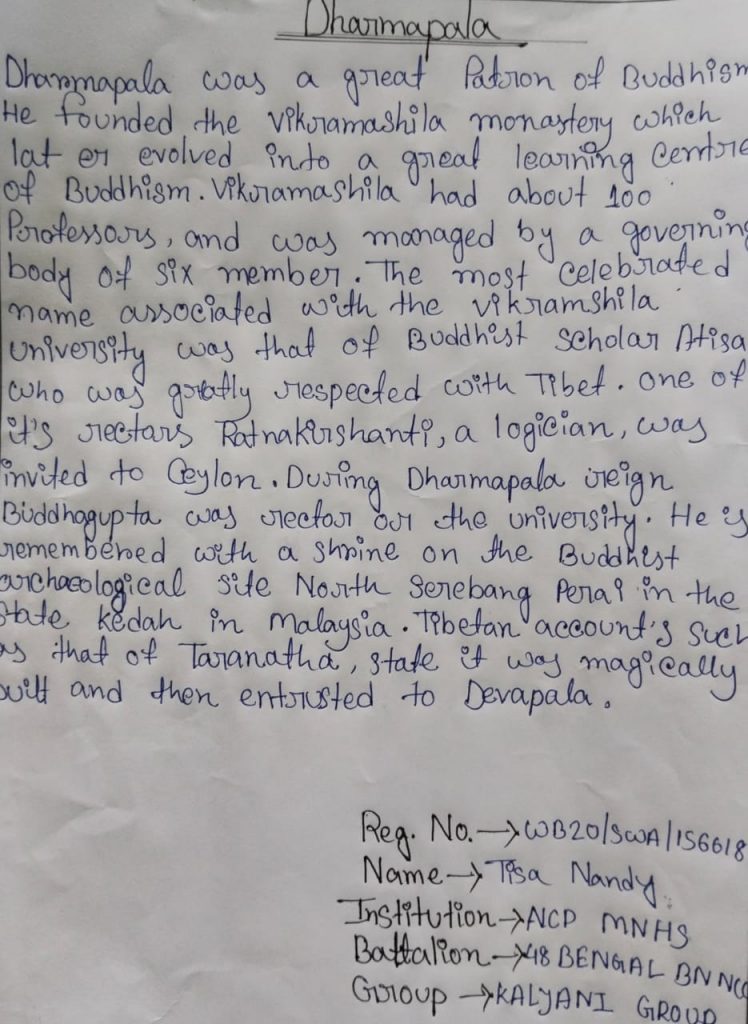 Dharmapala
Dharmapala was a great Patron of Buddhism
He founded the Vikramashila monastery which
lat er evolved into a great learning Centre
of Buddhism. Vikramashila had about 100
Professors, and was managed by a governing
body of six member. The most celebrated
name associated with the vikramshila
university was that of Buddhist Scholar Atisa
who was greatly respected with Tibet. One of
it's rectars Ratnakirshanti, a logician, was
invited to Ceylon. During Dharmapala reign
Buddhagupta was rector our the university. He is
remembered with a shrine on the Buddhist
archaeological site North Serebang Perai in the
State kedah in Malaysia. Tibetan account's such
as that of Taranatha, state it was magically
built and then entrusted to Devapala.
Reg. No. → WB20/SWA/156618
Name → Tisa Nandy
Institution → NCP MNHS
Battalion → 48 BENGAL BN NCC
Group → KALYANI GROUP